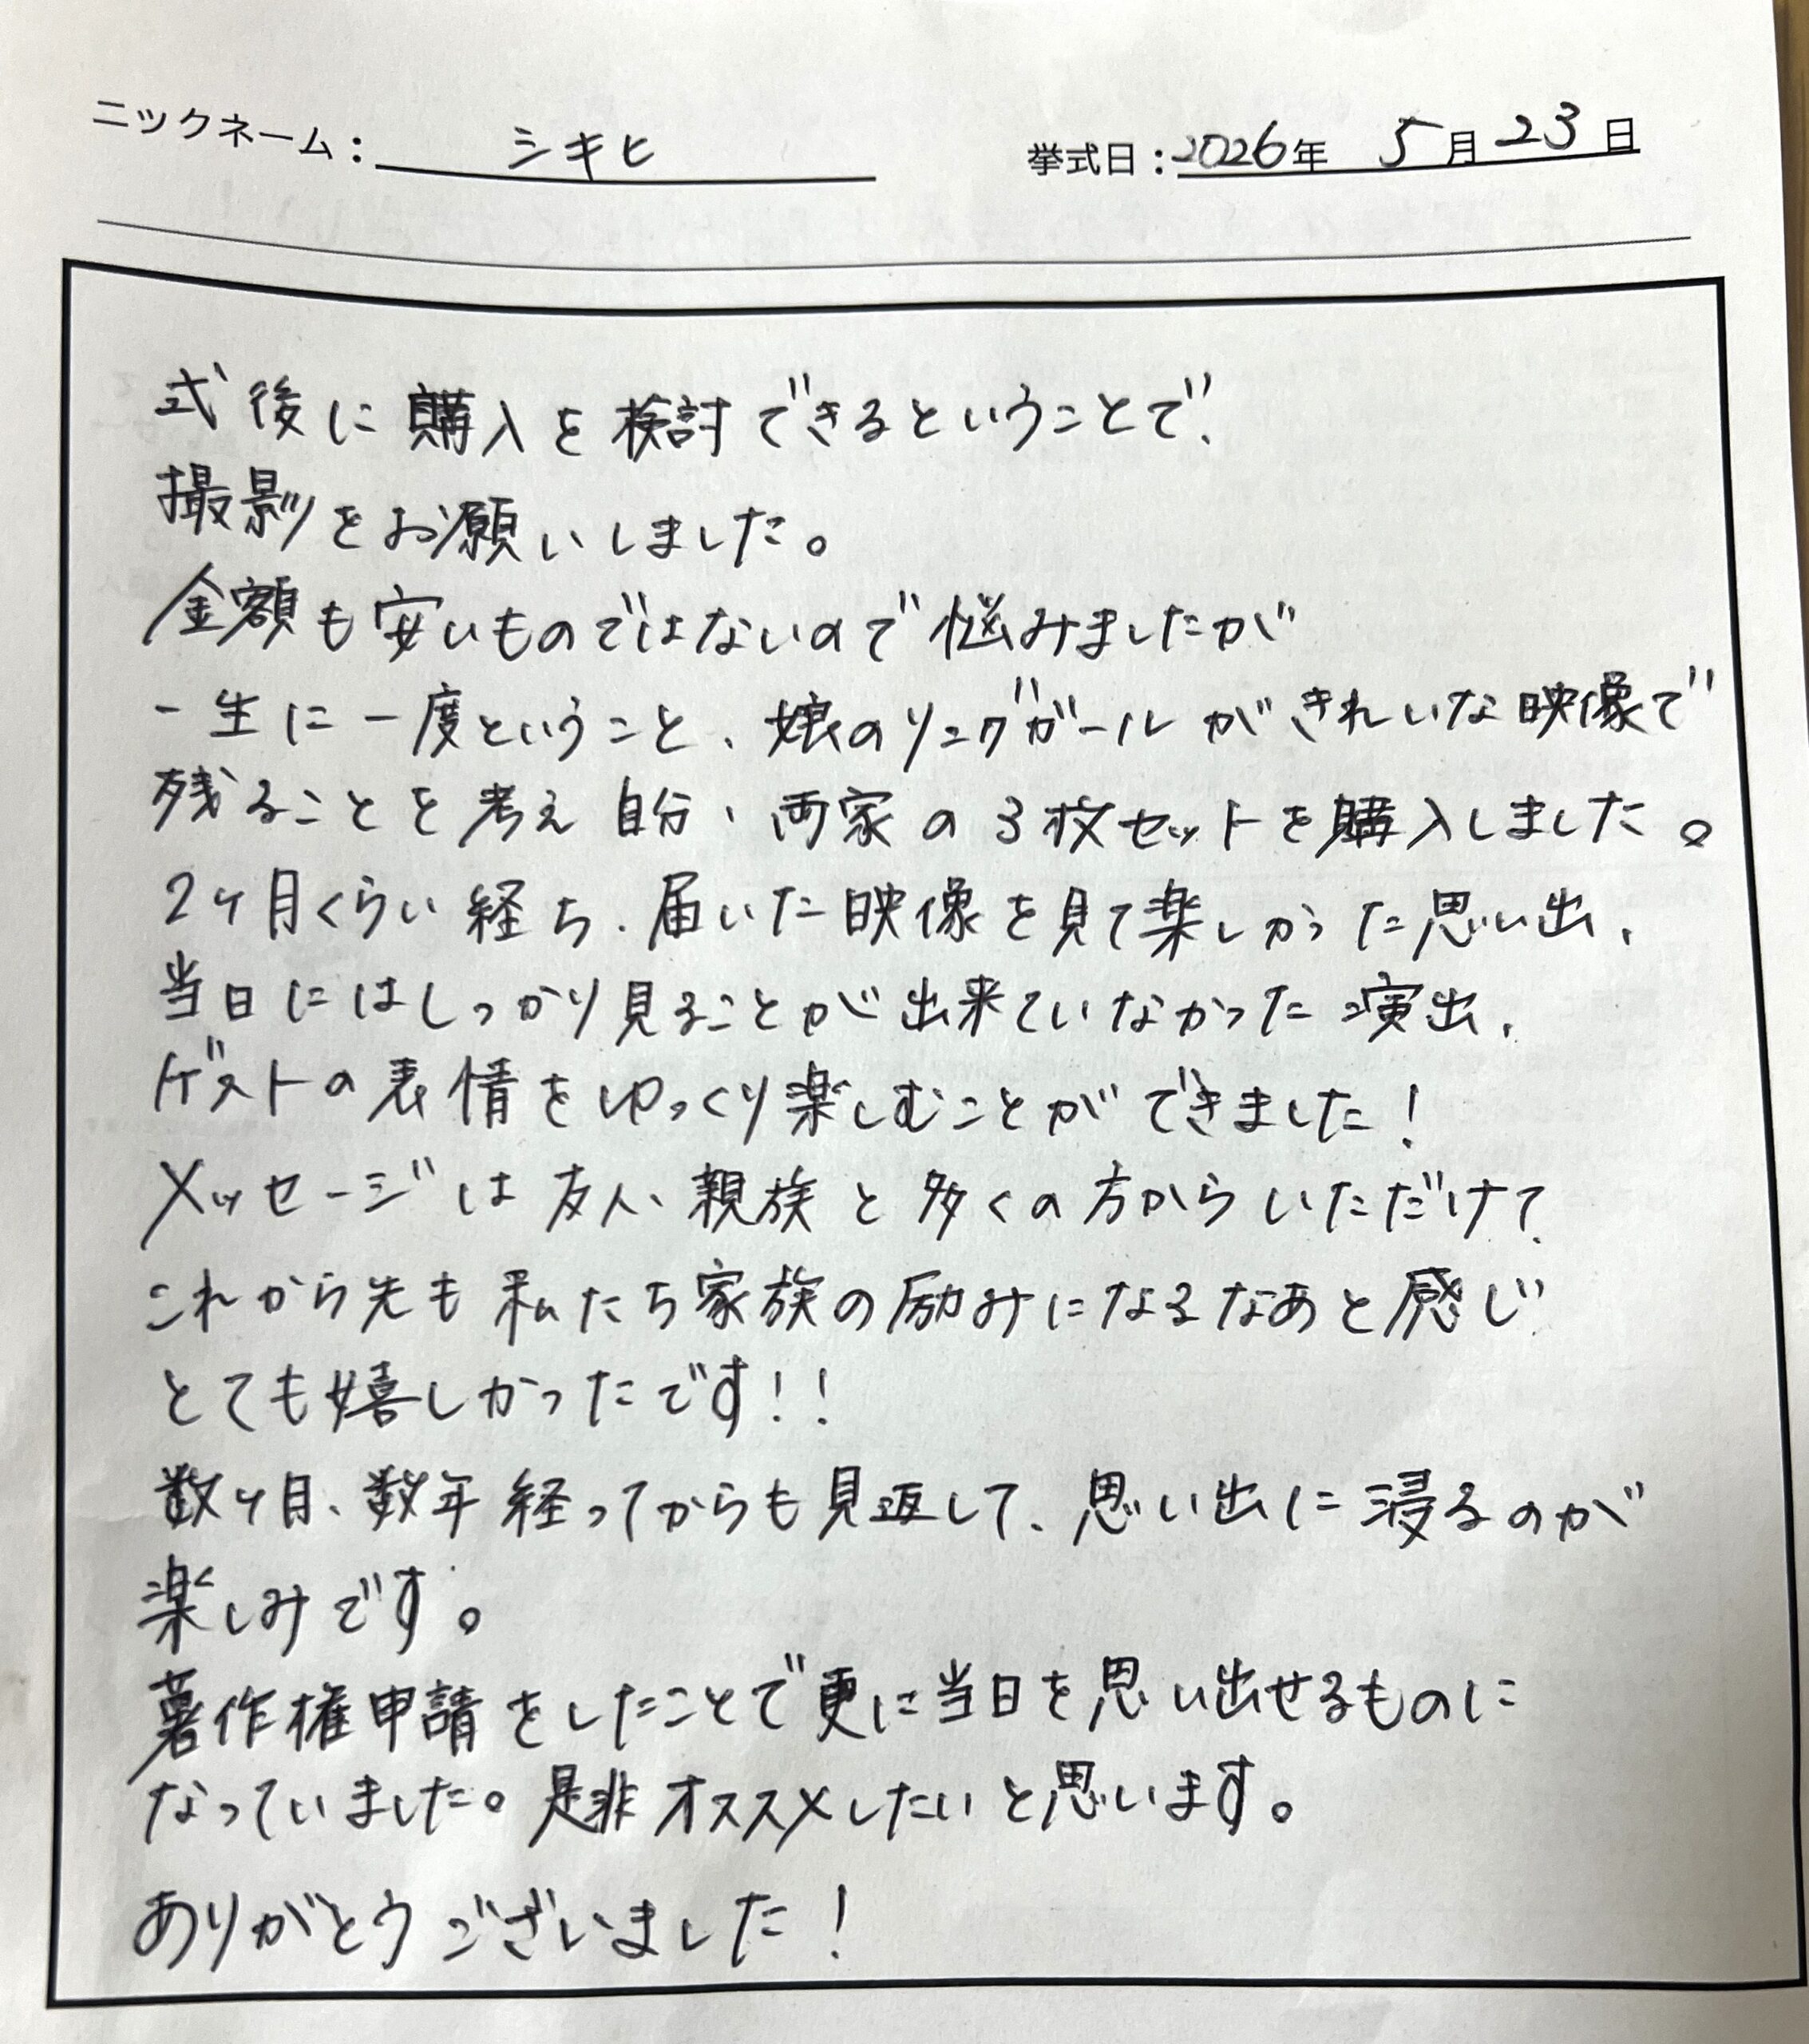 ニックネーム： シキヒ 挙式日：2026年 5月23日
式後に購入を検討できるということで、
撮影をお願いしました。
金額も安いものではないので悩みましたが
一生に一度ということ、娘のリングガールがきれいな映像で
残ることを考え自分、両家の3枚セットを購入しました。
2ヶ月くらい経ち、届いた映像を見て楽しかった思い出、
当日にはしっかり見ることが出来ていなかった演出、
ゲストの表情をゆっくり楽しむことができました！
メッセージは友人、親族と多くの方からいただけて、
これから先も私たち家族の励みになるなあと感じ
とても嬉しかったです！！
数ヶ月、数年経ってからも見返して、思い出に浸るのが
楽しみです。
著作権申請をしたことで更に当日を思い出せるものに
なっていました。是非オススメしたいと思います。
ありがとうございました！